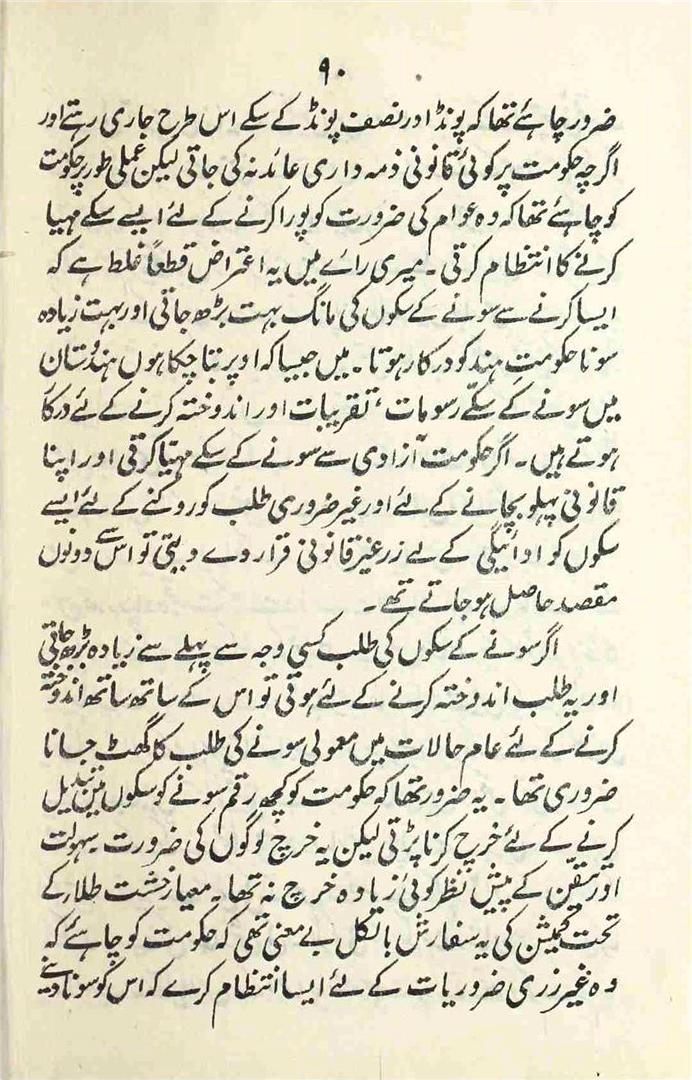 ۹۰
ضرور چاہئے تھا کہ پونڈ اور نصف پونڈ کے سکے اس طرح جاری رہتے اور
اگرچہ حکومت پر کوئی قانونی ذمہ داری عائد نہ کی جاتی لیکن عملی طور پر حکومت
کو چاہئے تھا کہ وہ عوام کی ضرورت کو پورا کرنے کے لئے ایسے سکے مہیا
کرنے کا انتظام کرتی۔ میری رائے میں یہ اعتراض قطعاً غلط ہے کہ
ایسا کرنے سے سونے کے سکوں کی مانگ بہت بڑھ جاتی اور بہت زیادہ
سونا حکومتِ ہند کو درکار ہوتا۔ میں جیسا کہ اوپر بتا چکا ہوں ہندستان
میں سونے کے سکّے رسومات، تقریبات اور اندوختہ کرنے کے لئے درکا
ہوتے ہیں۔ اگر حکومت آزادی سے سونے کے سکے مہیّا کرتی اور اپنا
قانونی پہلو بچانے کے لئے اور غیر ضروری طلب کو روکنے کے لئے ایسے
سکوں کو ادائیگی کے لئے زر غیر قانونی قرار دے دیتی تو اس سے دونوں
مقصد حاصل ہو جاتے تھے۔
اگر سونے کے سکوں کی طلب کسی وجہ سے پہلے سے زیادہ بڑھ جاتی
اور یہ طلب اندوختہ کرنے کے لئے ہوتی تو اس کے ساتھ ساتھ اندوختہ
کرنے کے لئے عام حالات میں معمولی سونے کی طلب کا گھٹ جانا
ضروری تھا۔ یہ ضرور تھا کہ حکومت کو کچھ رقم سونے کو سکوں میں تبدیل
کرنے کے لئے خرچ کرنا پڑتی لیکن یہ خرچ لوگوں کی ضرورت سہولت
اور تیقن کے پیش نظر کوئی زیادہ خرچ نہ تھا۔ معیار خشت طلار کے
تحت کمیشن کی یہ سفارش بالکل بے معنی تھی کہ حکومت کو چاہئے کہ
وہ غیر زری ضروریات کے لئے ایسا انتظام کرے کہ اس کو سونا دینے